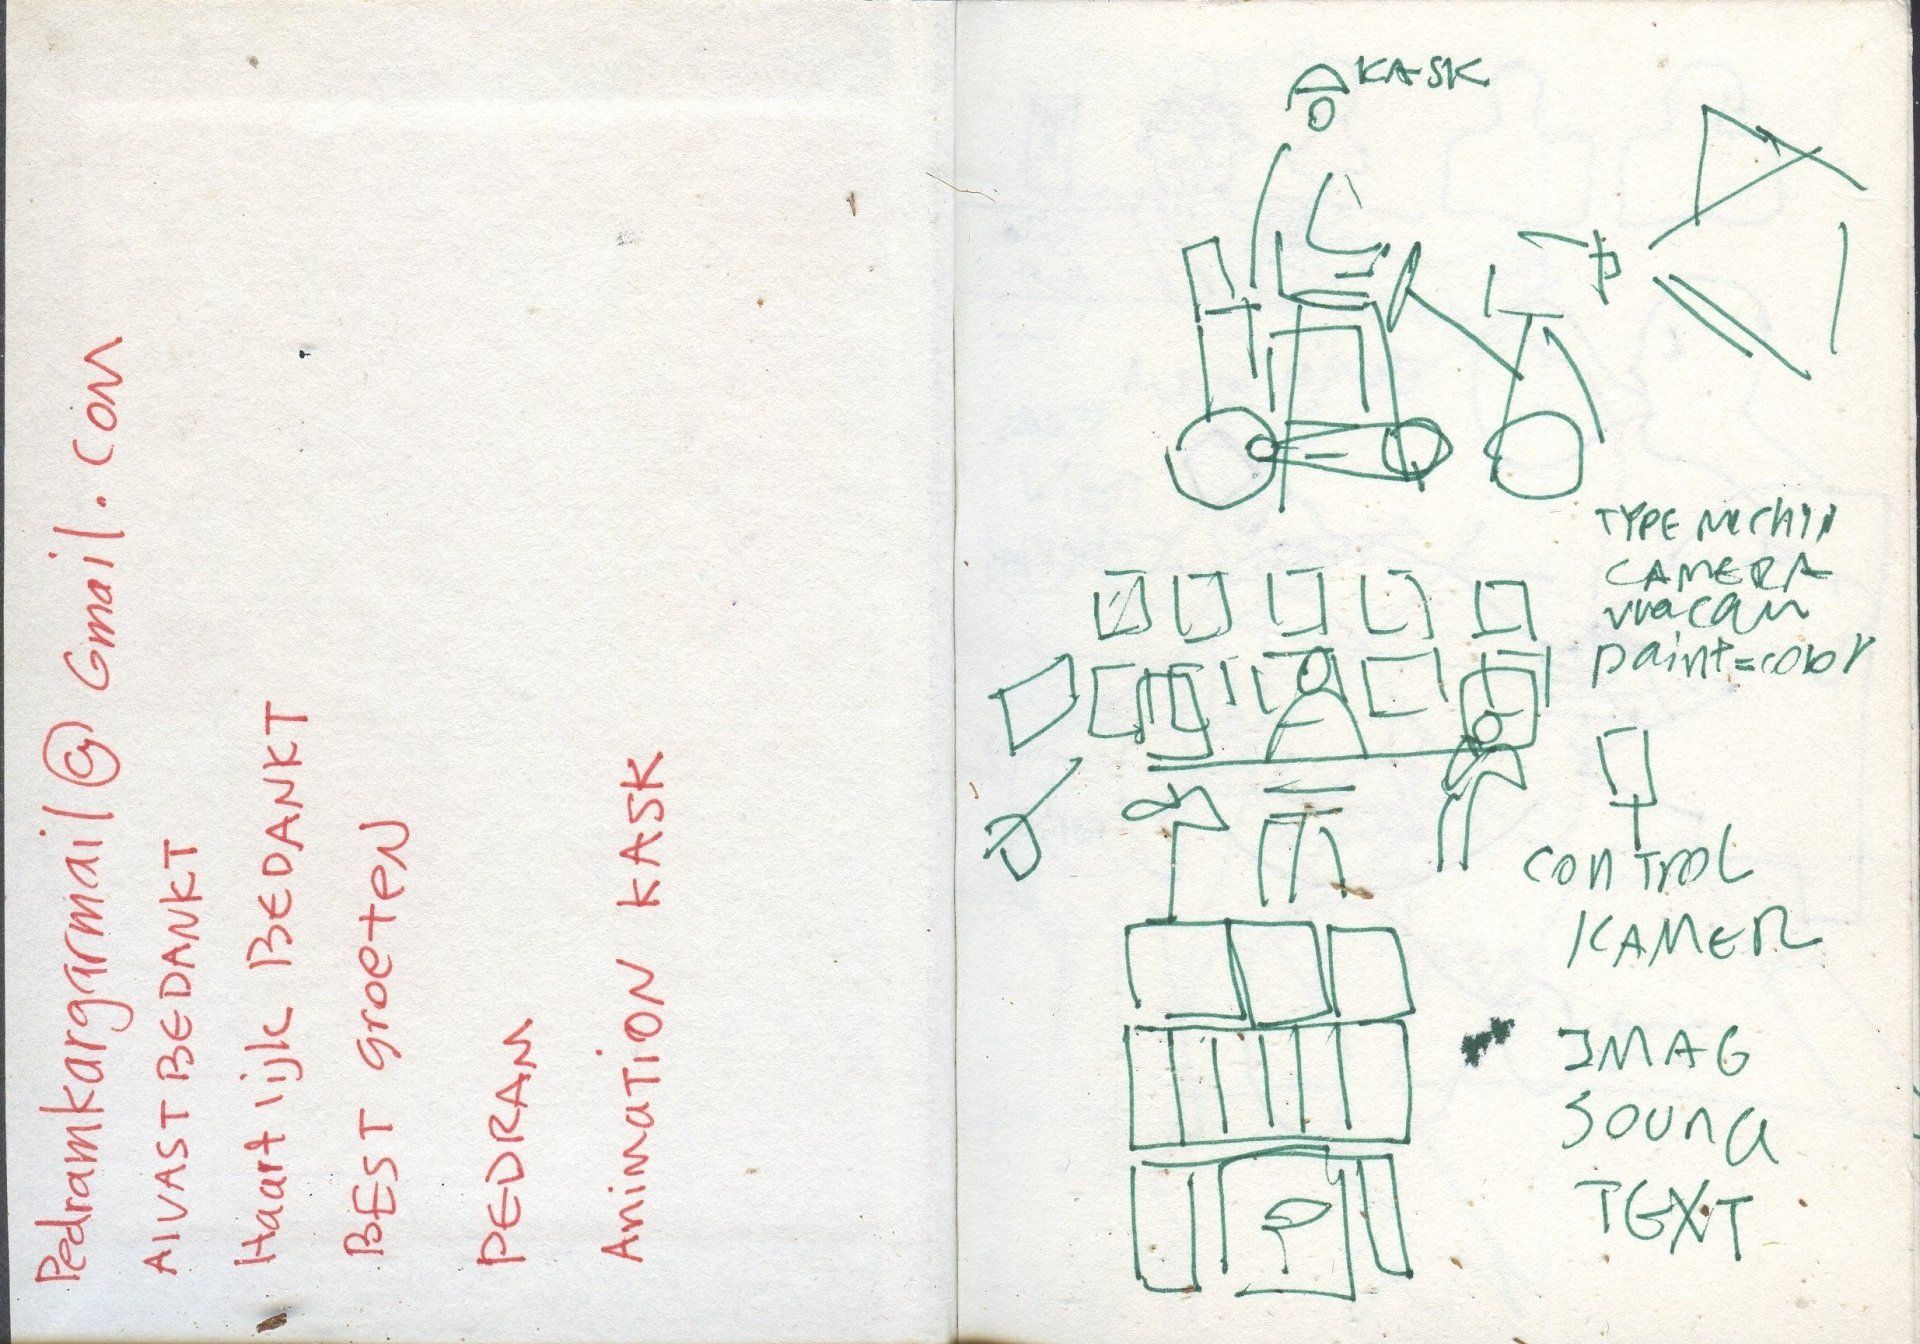 Pedramkargarmail@Gmail.com
AlVAST BEDANKT
Haart lijk BEDANKT
BEST groeten
PEDRAM
Animation KASK
KASK
TYPE Mchin
CAMERA
vuacam
paint=color
CONTROL
KAMER
IMAG
SOUND
TEXT